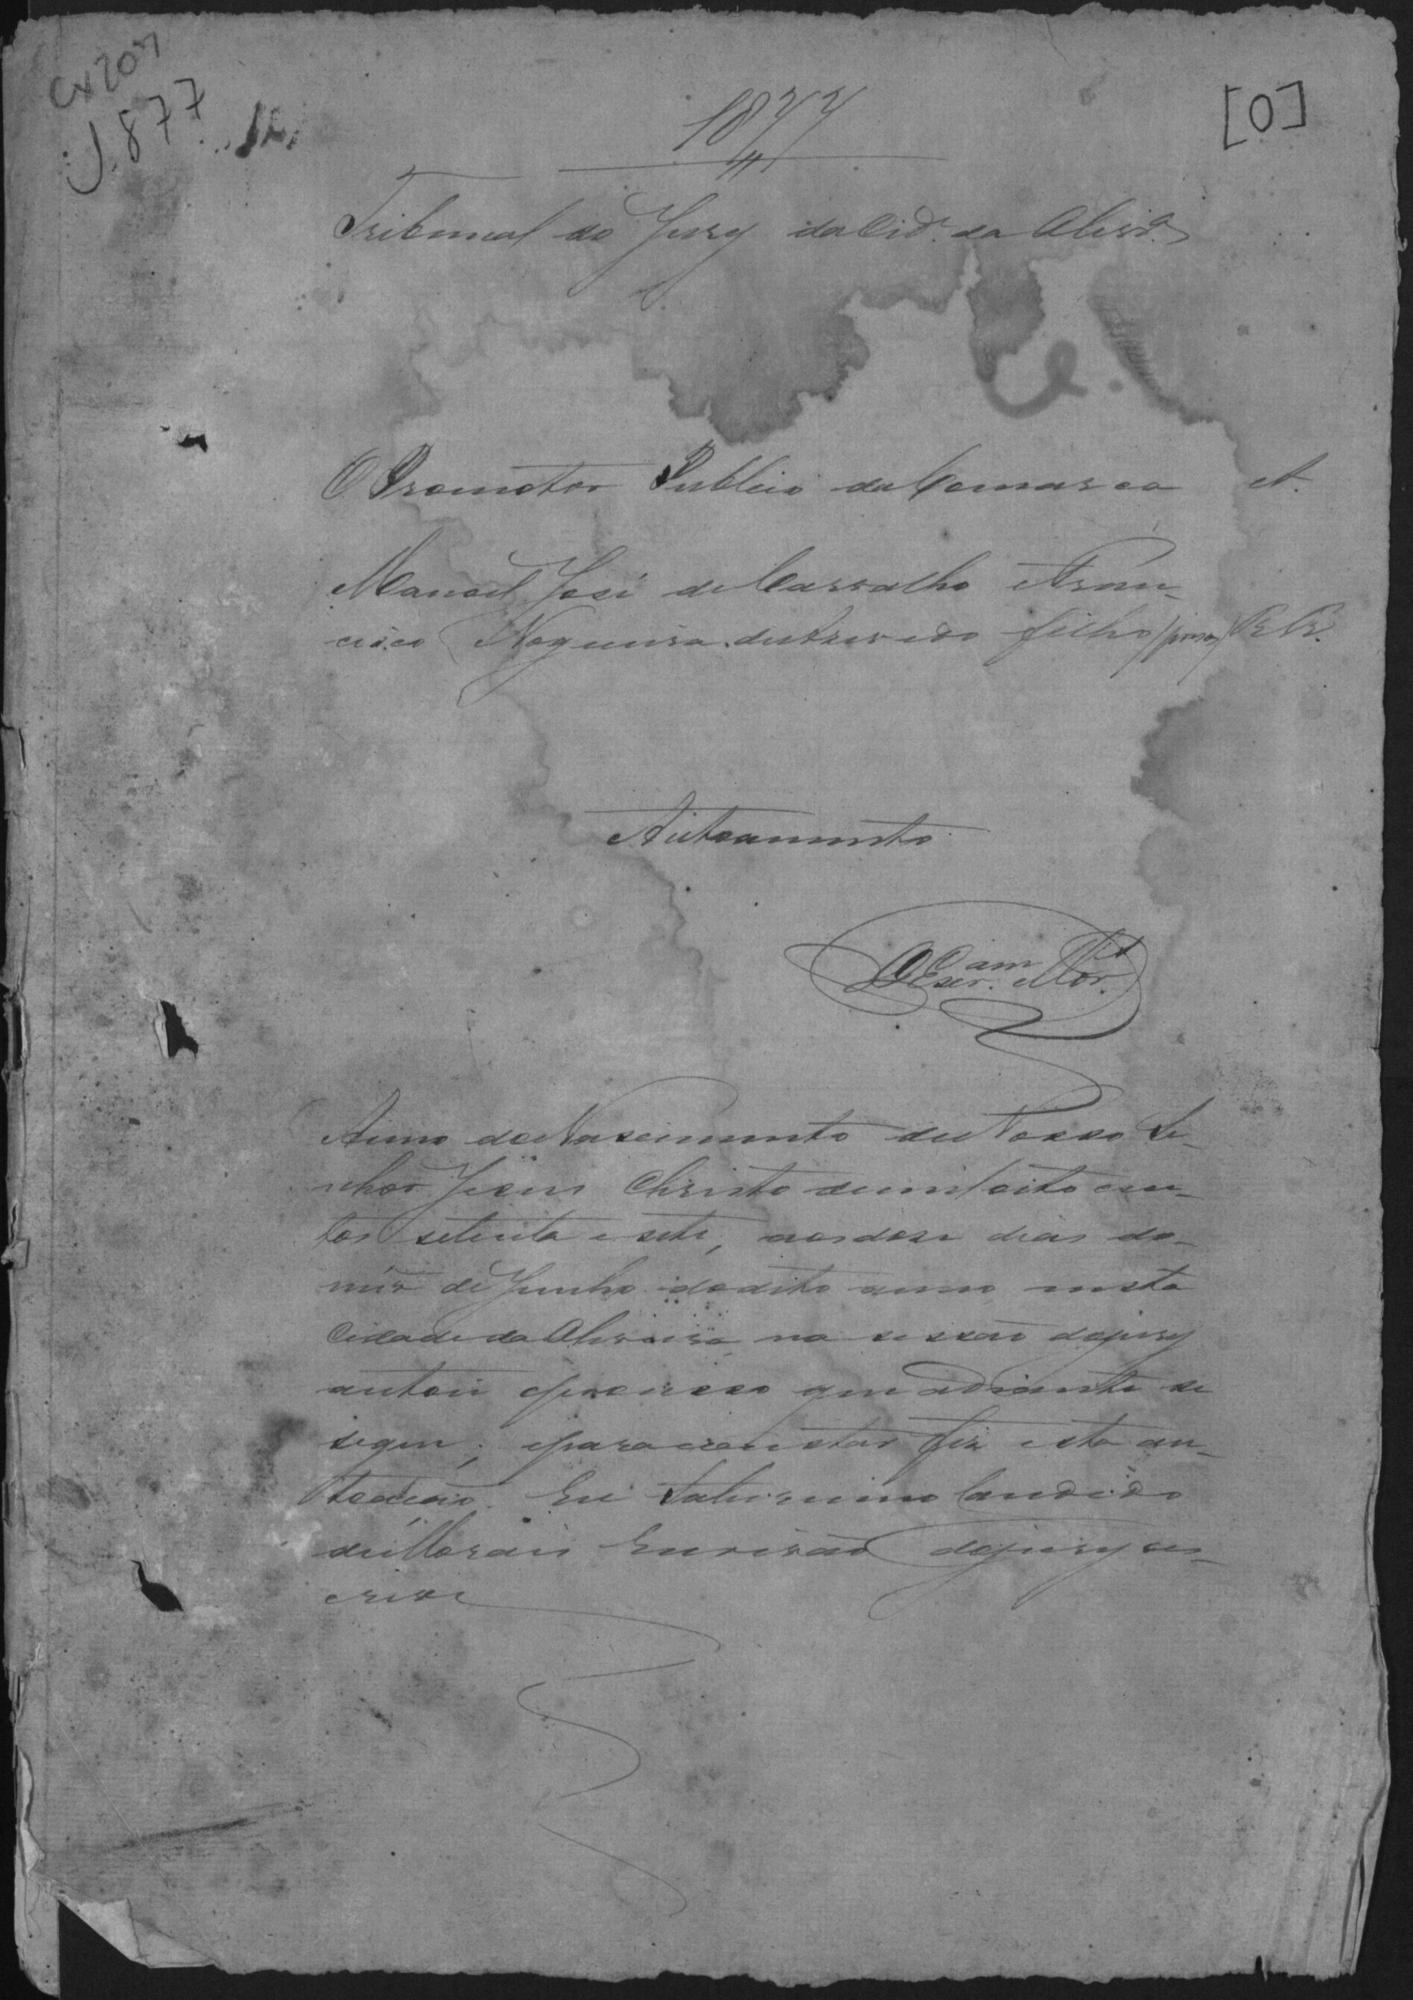 Cx 207
J. 877
[0]
1877
Tribunal do Jury da Cidᵉ. da Olivrᵃ.
O Promotor Publico da Comarca A.
Manoel José de Carvalho e Fran-
cisco Nogueira de Azevedo filho (preso) RR.
Autoamento
O Escr. Mor.
Anno do Nascimento de Nosso Se-
nhor Jesus Christo de mil oito cen-
tos setenta e sete, aos dose dias do
mês de Junho do dito anno nesta
Cidade da Oliveira na sessão do jury
autoei o processo que adiante se
segue; e para constar fiz esta au-
toação. Eu Saturnino Candido
de Morais Escrivão do jury es-
crivi